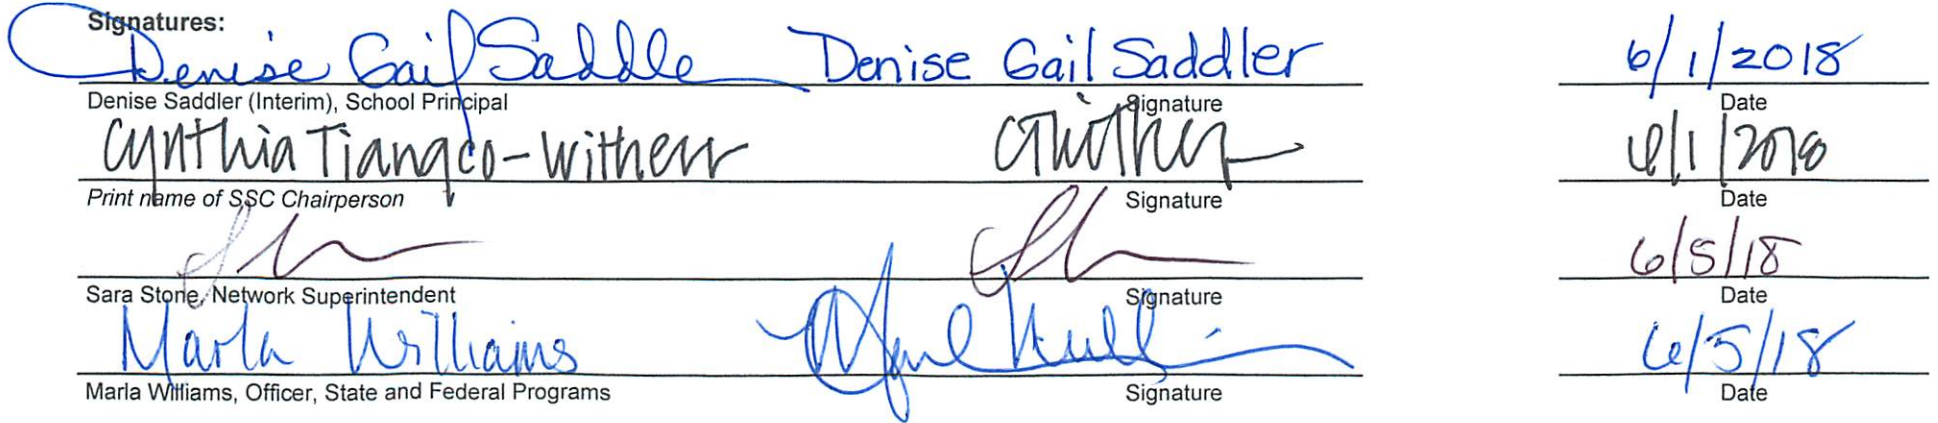 Signatures:
Denise Gail Saddle Denise Gail Saddler 6/1/2018
Denise Saddler (Interim), School Principal Signature Date
Cynthia Tiangco-Witherr 6/1/2018
Print name of SSC Chairperson Signature Date
6/5/18
Sara Stone, Network Superintendent Signature Date
Marla Williams 6/5/18
Marla Williams, Officer, State and Federal Programs Signature Date